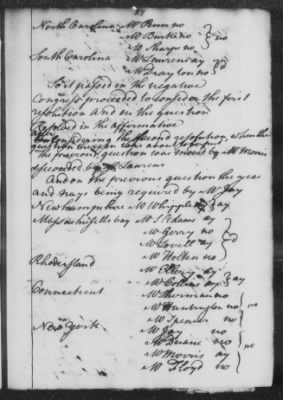 North Carolina Mr Penn no
Mr Burke no } no
Mr Sharpe no
South Carolina Mr Laurens ay } d
Mr Drayton no
So it passed in the negative
Congress proceeded to consider the first
resolution and on the question
Resolved in the affirmative
the second resolution, when the
question thereon was about to be put
the previous question was moved by Mr Morris
seconded by Mr Laurens
And on the previous question the yeas
and nays being required by Mr Jay
Newhampshire Mr Whipple ay } ay
Massachusetts bay Mr S Adams ay
Mr Gerry no
Mr Lovell ay } d
Mr Holten no
Rhode island Mr Ellery ay
Mr Collins ay } ay
Connecticut Mr Sherman no
Mr Huntington no } no
Mr Spencer no
New York Mr Jay no
Mr Duane no } no
Mr Morris ay
Mr Floyd no